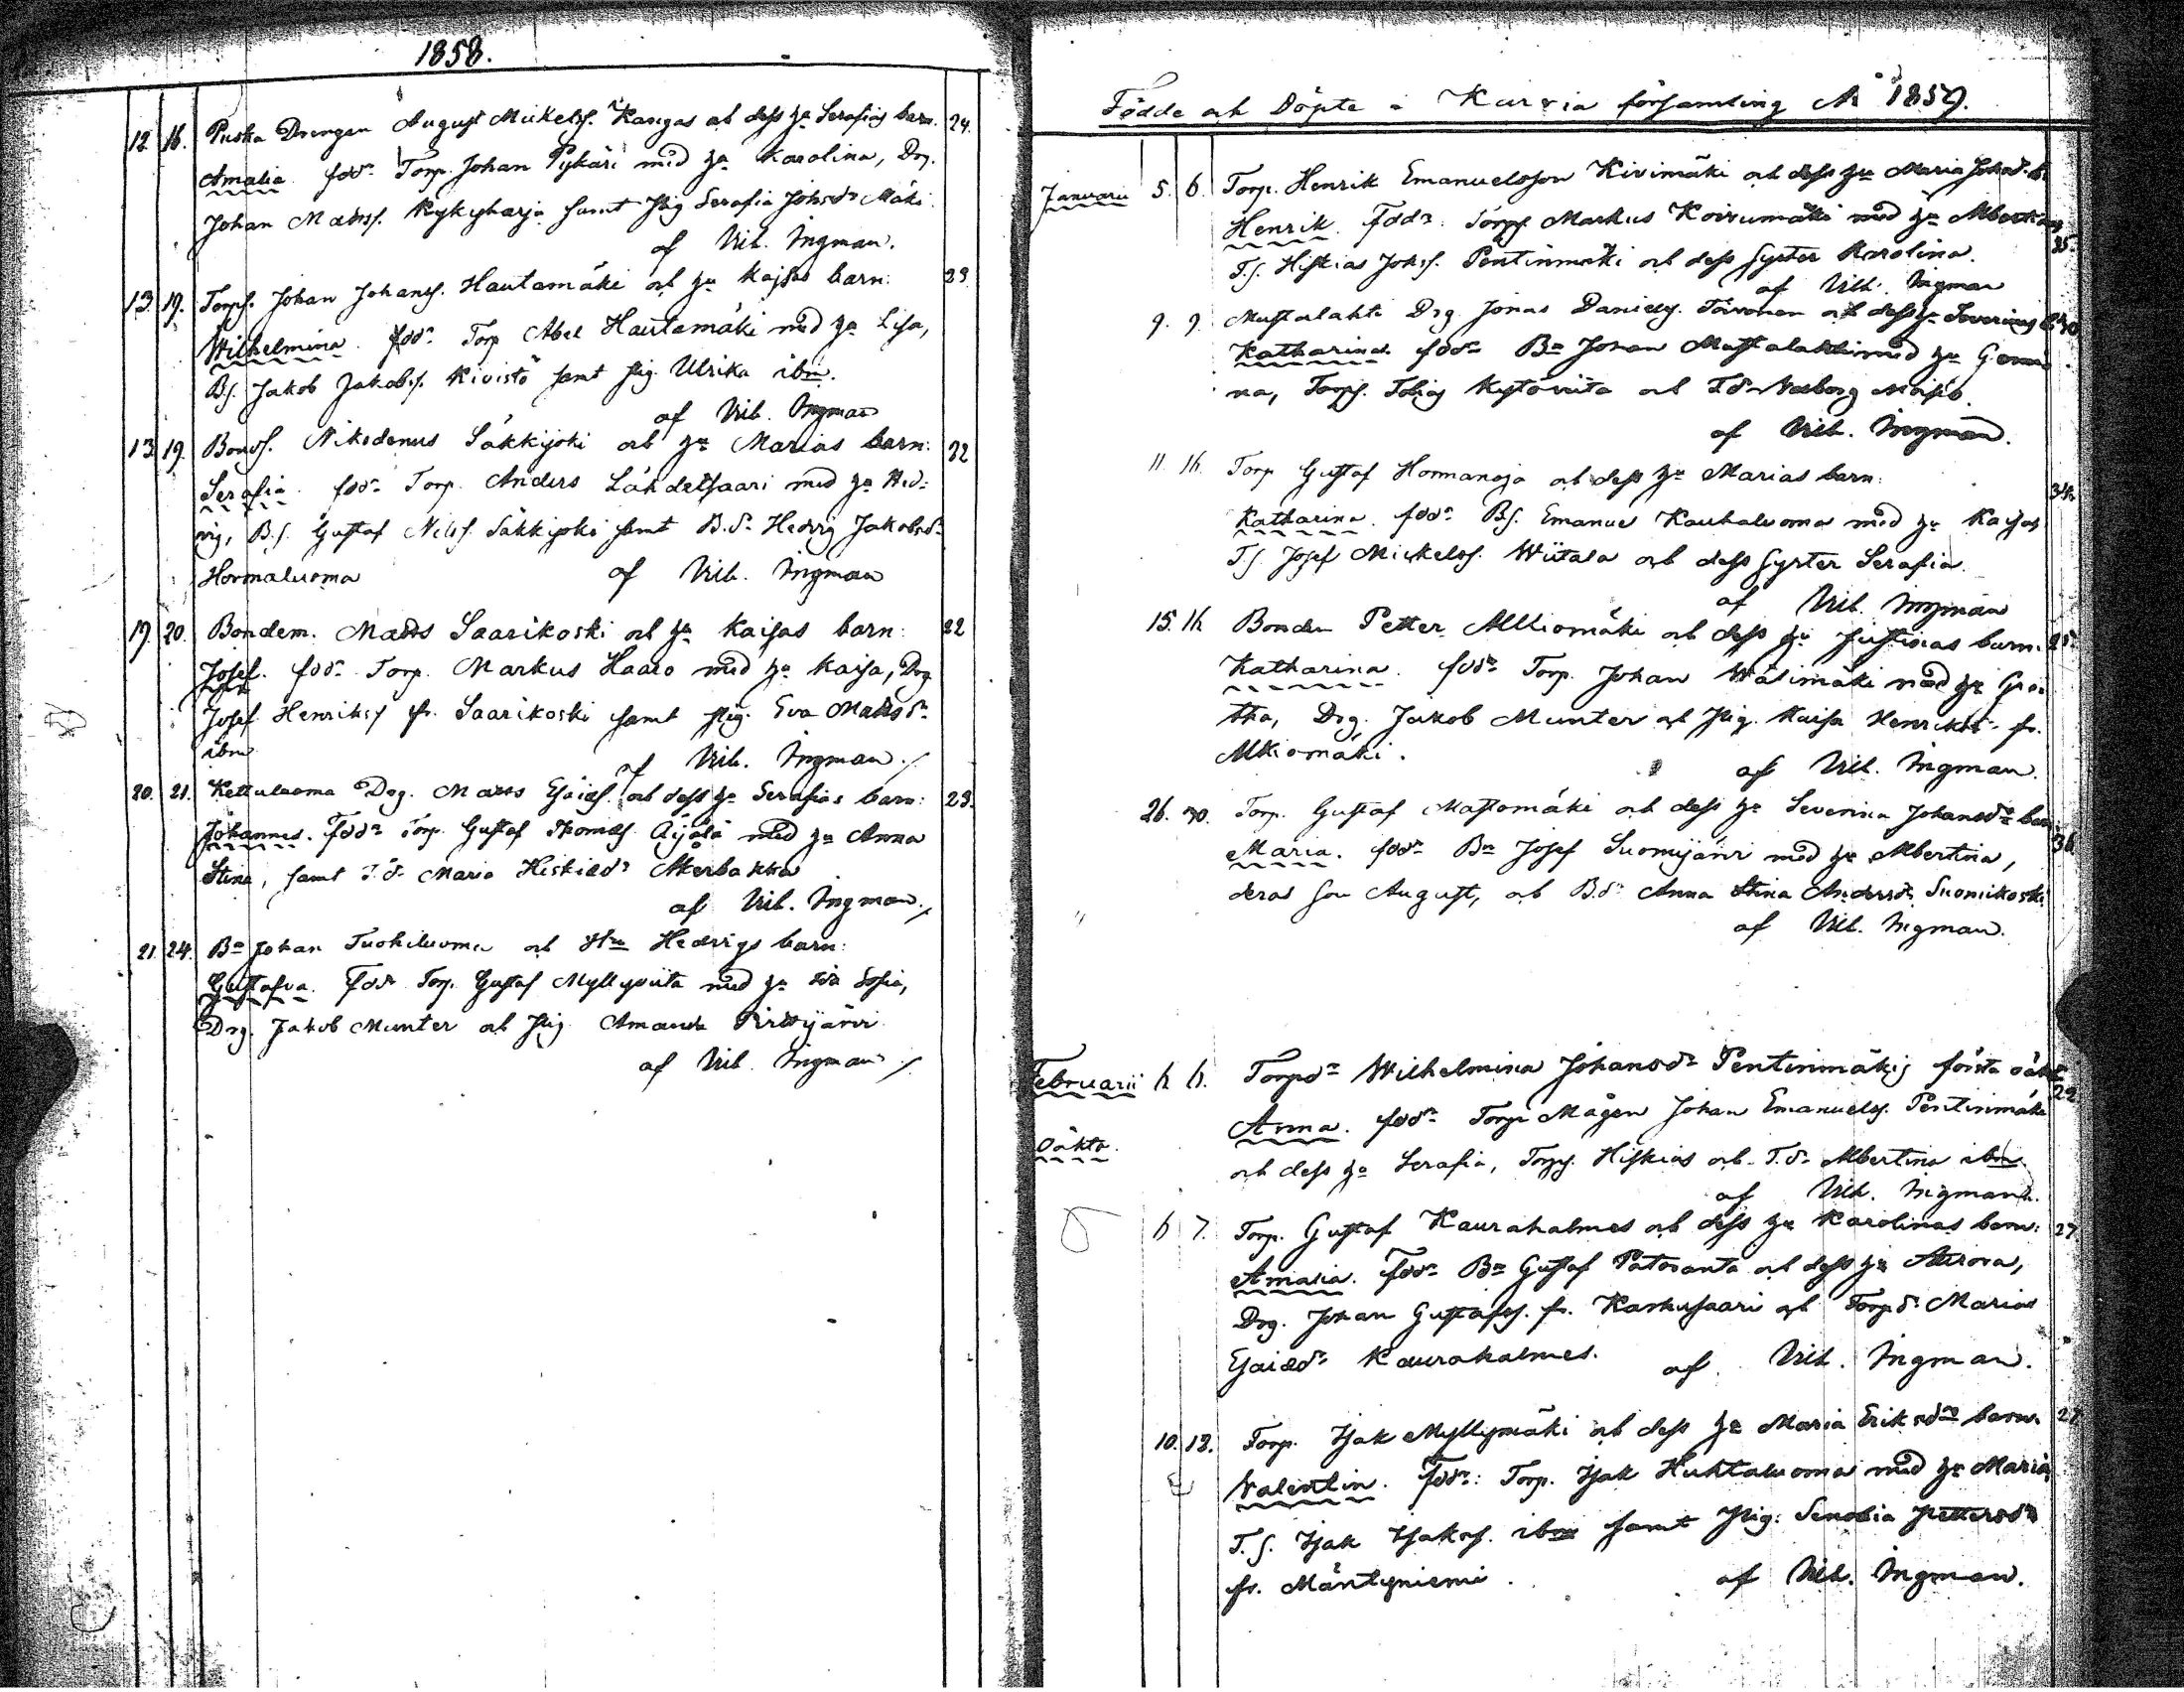 1858.
12. 16. Puska Drengen August Mickelss. Kangas och dess hu Serafias barn. 24.
Amalia. fddr Torp. Johan Pykäri med hu Karolina, Drg.
Johan Matss. Kykyharju samt Pig. Serafia Johsdr Mäki.
af Vik. Ingman.
13. 19. Torps. Johan Johanss. Hautamäki och hu Kajsas barn: 23.
Wilhelmina. fddr Torp Abel Hautamäki med hu Lisa,
Bs. Jakob Jakobss. Kivistö samt Pig. Ulrika ibm.
af Vik. Ingman
13. 19. Bonds. Nikodemus Säkkijoki och hu Marias barn: 32
Serafia. fddr Torp. Anders Lähdetsaari med hu Hed-
vig, B.s. Gustaf Nilss. Säkkijoki samt B.dr Hedvig Jakobsdr
Hormaluoma af Vik. Ingman
19. 20. Bondem. Matts Saarikoski och hu Kaisas barn: 22
Josef. fddr Torp. Markus Haaro med hu Kaisa, Drg
Josef Henrikss fr. Saarikoski samt Pig. Eva Matsdr
ibm af Vik. Ingman.
20. 21. Kettuluoma Drg. Matts Esaiass. och dess hu Serafias barn: 23.
Johannes. Fddr Torp. Gustaf Thomass. Äijälä med hu Anna
Stina, samt T.dr Maria Hiskiasdr Akerbakka
af Vik. Ingman.
21. 24. Bn Johan Tuohiluoma och Hu Hedvigs barn:
Gustafva. Fddr Torp. Gustaf Myllyviita med hu Eva Sofia,
Drg. Jakob Munter och Pig. Amanda Pirttijärvi
af Vik. Ingman
Födde och Döpte i Kurvia församling År 1859.
Januarii 5. 6. Torp. Henrik Emanuelsson Kivimäki och dess hu Maria Johsdr b.
Henrik. Fddr. Torps Markus Koivumäki med hu Albertina, 35.
T.s. Hiskias Johss. Pentinmäki och dess syster Karolina.
af Vik. Ingman
9. 9. Mustalahti Drg Jonas Daniels. Toivonen och dess hu Severinas b. 40
Katharina. fddr Bn Johan Mustalahti med hu
na, Torps. Tobias Kystöviita och T.dr
af Vik. Ingman.
11. 16. Torp Gustaf Hormanoja och dess hu Marias barn: 34.
Katharina. fddr Bs. Emanuel Kauhaluoma med hu Kajsa,
T.s. Josef Mickelss. Wiitala och dess syster Serafia.
af Vik. Ingman
15. 16. Bonden Petter Alkiomäki och dess hu Justinas barn. 25.
Katharina. fddr Torp. Johan Wälimäki med hu Gre-
tha, Drg. Jakob Munter och Pig. Kaisa Henriksdr fr.
Alkiomäki. af Vik. Ingman.
26. 30. Torp. Gustaf Mastomäki och dess hu Severina Johansdr barn: 36
Maria. fddr Bn Josef Suomijärvi med hu Albertina,
deras son August, och B.dr Anna Stina Andersdr Suomikoski
af Vik. Ingman.
Februarii 6. 6. Torpdr Wilhelmina Johansdr Pentinmäkis första oäkta 22.
oäkta. Anna. fddr Torp Mågen Johan Emanuelss. Pentinmäki
och dess hu Serafia, Torps. Hiskias och T.dr Albertina ibm
af Vik. Ingman.
6 7. Torp. Gustaf Kaurahalmes och dess hu Karolinas barn: 27.
Amalia. Fddr Bn Gustaf Patoranta och dess hu Aurora,
Drg. Johan Gustafss. fr. Karhusaari och Torpdr Maria
Esaiædr Kaurahalmes. af Vik. Ingman.
10. 13. Torp. Isak Myllymäki och dess hu Maria Eriksdrs barn. 27
Valentin. Fddr: Torp. Isak Huhtaluoma med hu Maria,
T.s. Isak Isakss. ibm samt Pig: Senobia Pettersdr
fr. Mäntyniemi. af Vik. Ingman.